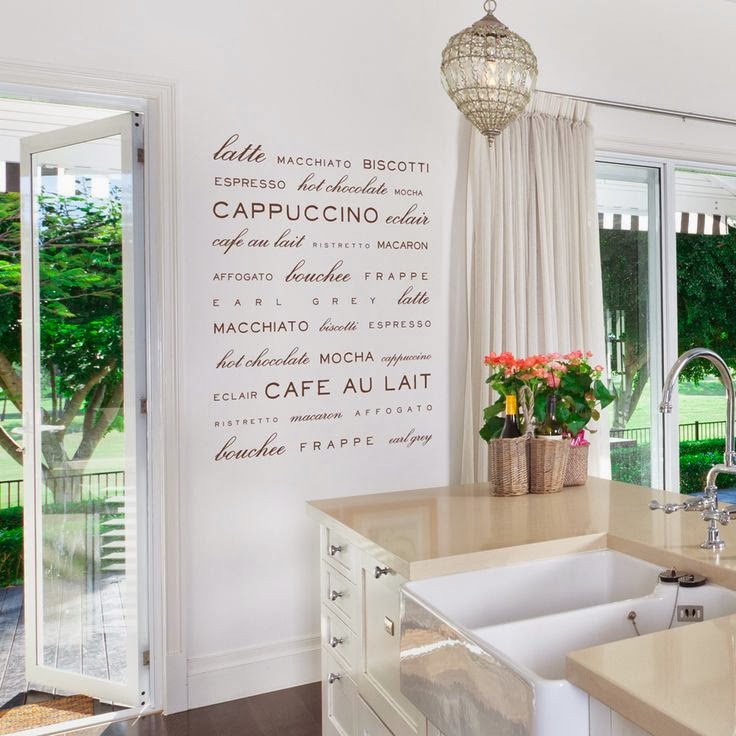 latte MACCHIATO BISCOTTI
ESPRESSO hot chocolate MOCHA
CAPPUCCINO eclair
cafe au lait RISTRETTO MACARON
AFFOGATO bouchee FRAPPE
EARL GREY latte
MACCHIATO biscotti ESPRESSO
hot chocolate MOCHA cappuccino
ECLAIR CAFE AU LAIT
RISTRETTO macaron AFFOGATO
bouchee FRAPPE earl grey